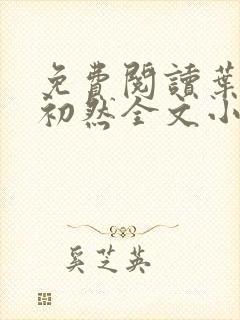 免費閱讀葉
初然全文小
奚芝英